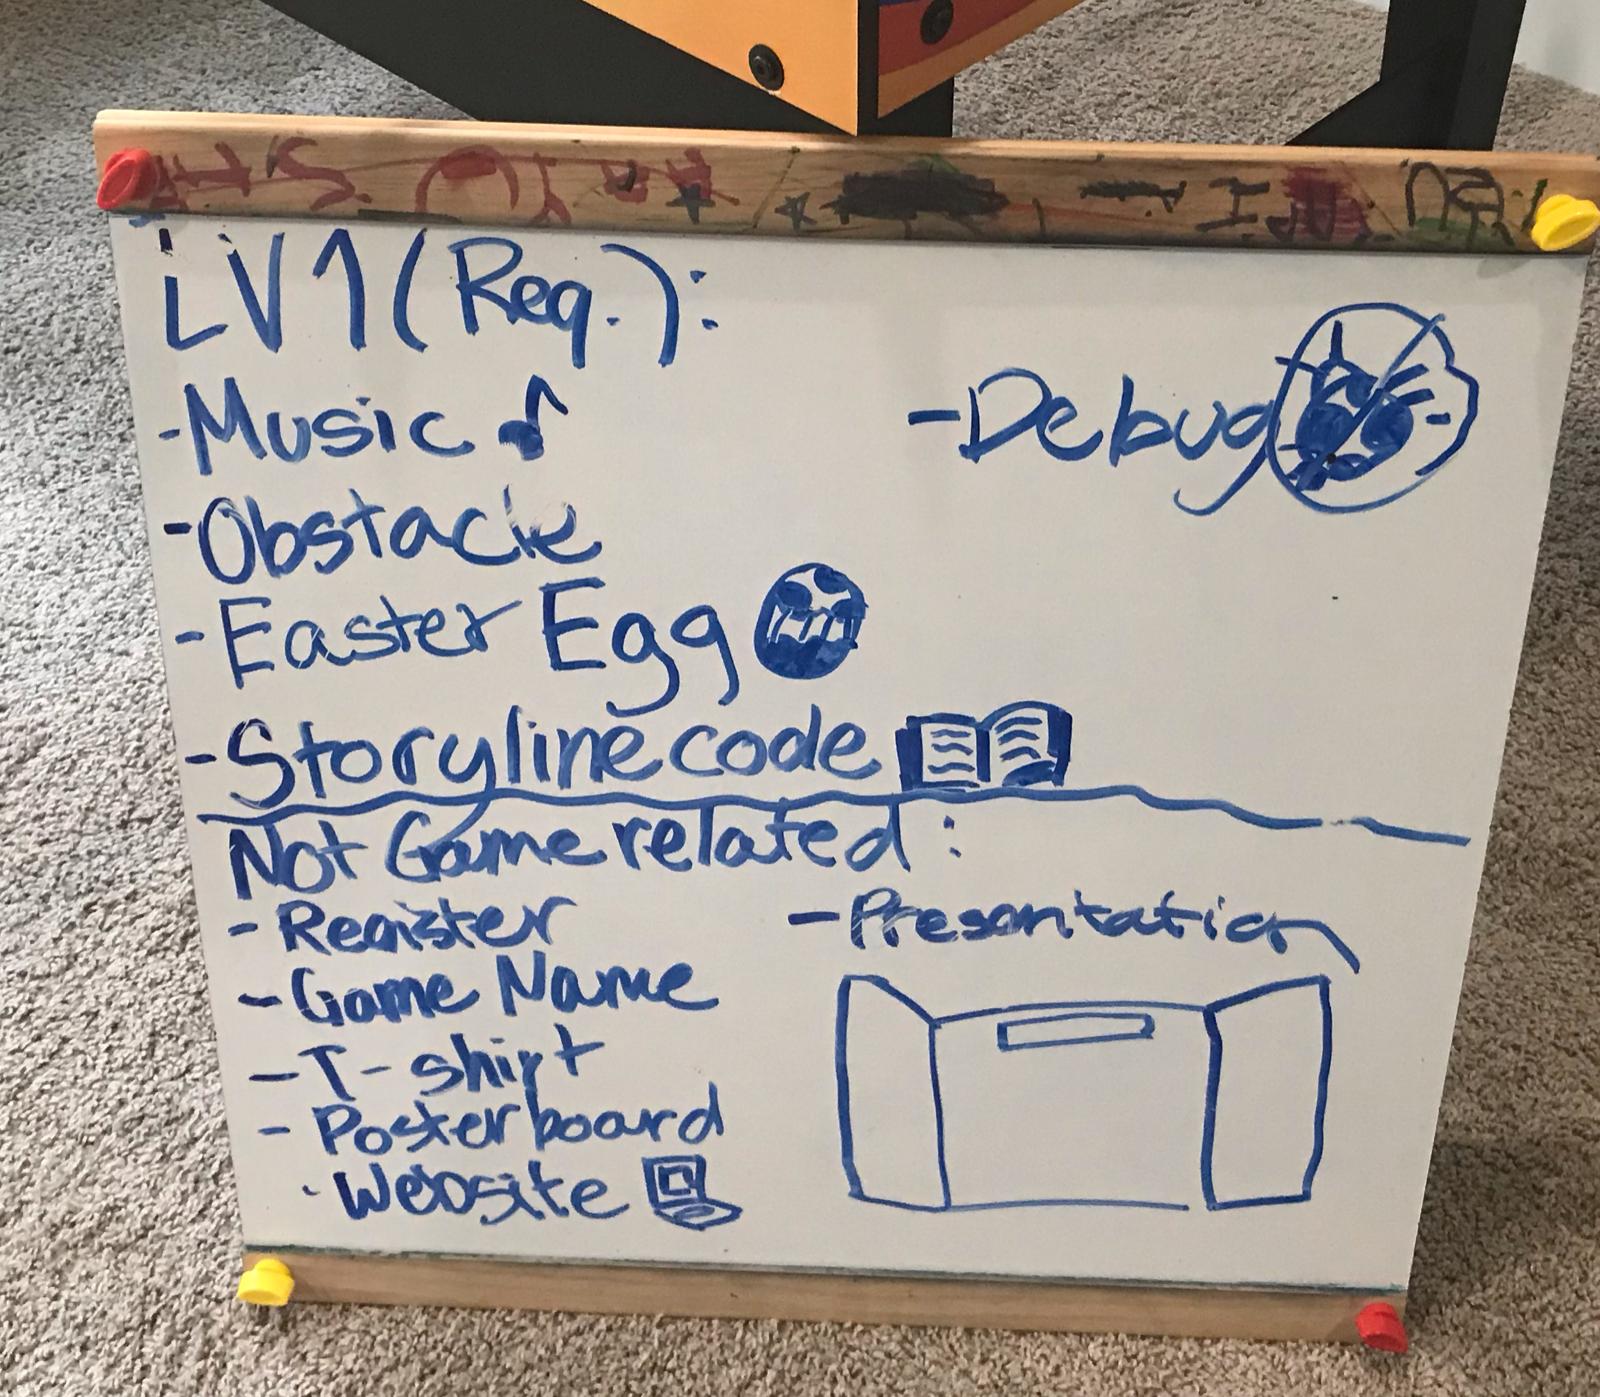 LV1 (Req.):
-Music
-Obstacle
-Easter Egg
-Storyline code
-Debug
Not Game related:
- Register
- Game Name
- T-shirt
- Posterboard
- Website
- Presentation